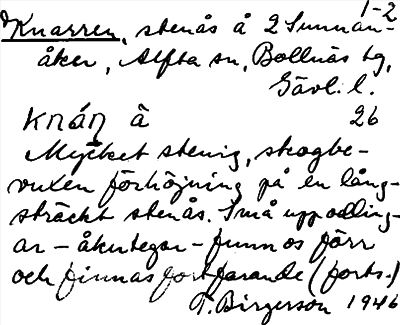 1-2
Knarren, stenås å 2 Sunnan-
åker, Alfta sn, Bollnäs tg,
Gävl. l.
knáŋ â 26
Mycket stenig, skogbe-
vuxen förhöjning på en lång-
sträckt stenås. Små uppodling-
ar - åkertegar - funnos förr
och finnas fortfarande (forts.)
T. Birgerson 1946